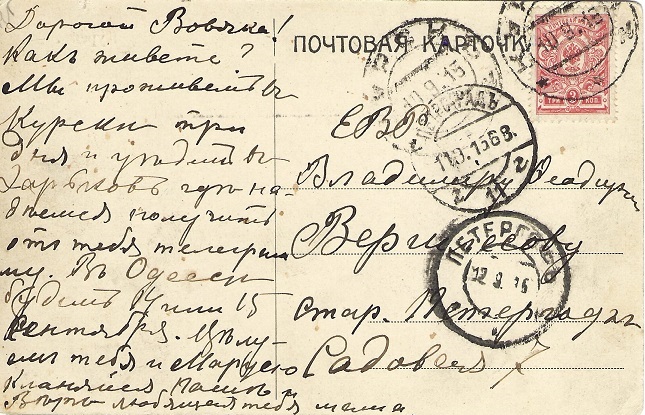 Дорогой Вовяка!
Какъ живете?
Мы проживемъ въ
Курскѣ три
дня и уѣдемъ въ
Харьковъ гдѣ на-
дѣемся получить
отъ тебя телеграм
му. Въ Одессѣ
будемъ 14 или 15
сентября. Цѣлу-
емъ тебя и Марусю
Кланяйся
любящая тебя мама
ПОЧТОВАЯ КАРТОЧКА
ЕВР
Владимиру
стар. Петергофъ
Садовая 7
КУРСКЪ
10.9.15
ПЕТРОГРАДЪ
11.9.15
ПЕТЕРГОФЪ
12.9.15
3
ТРИ КОП.